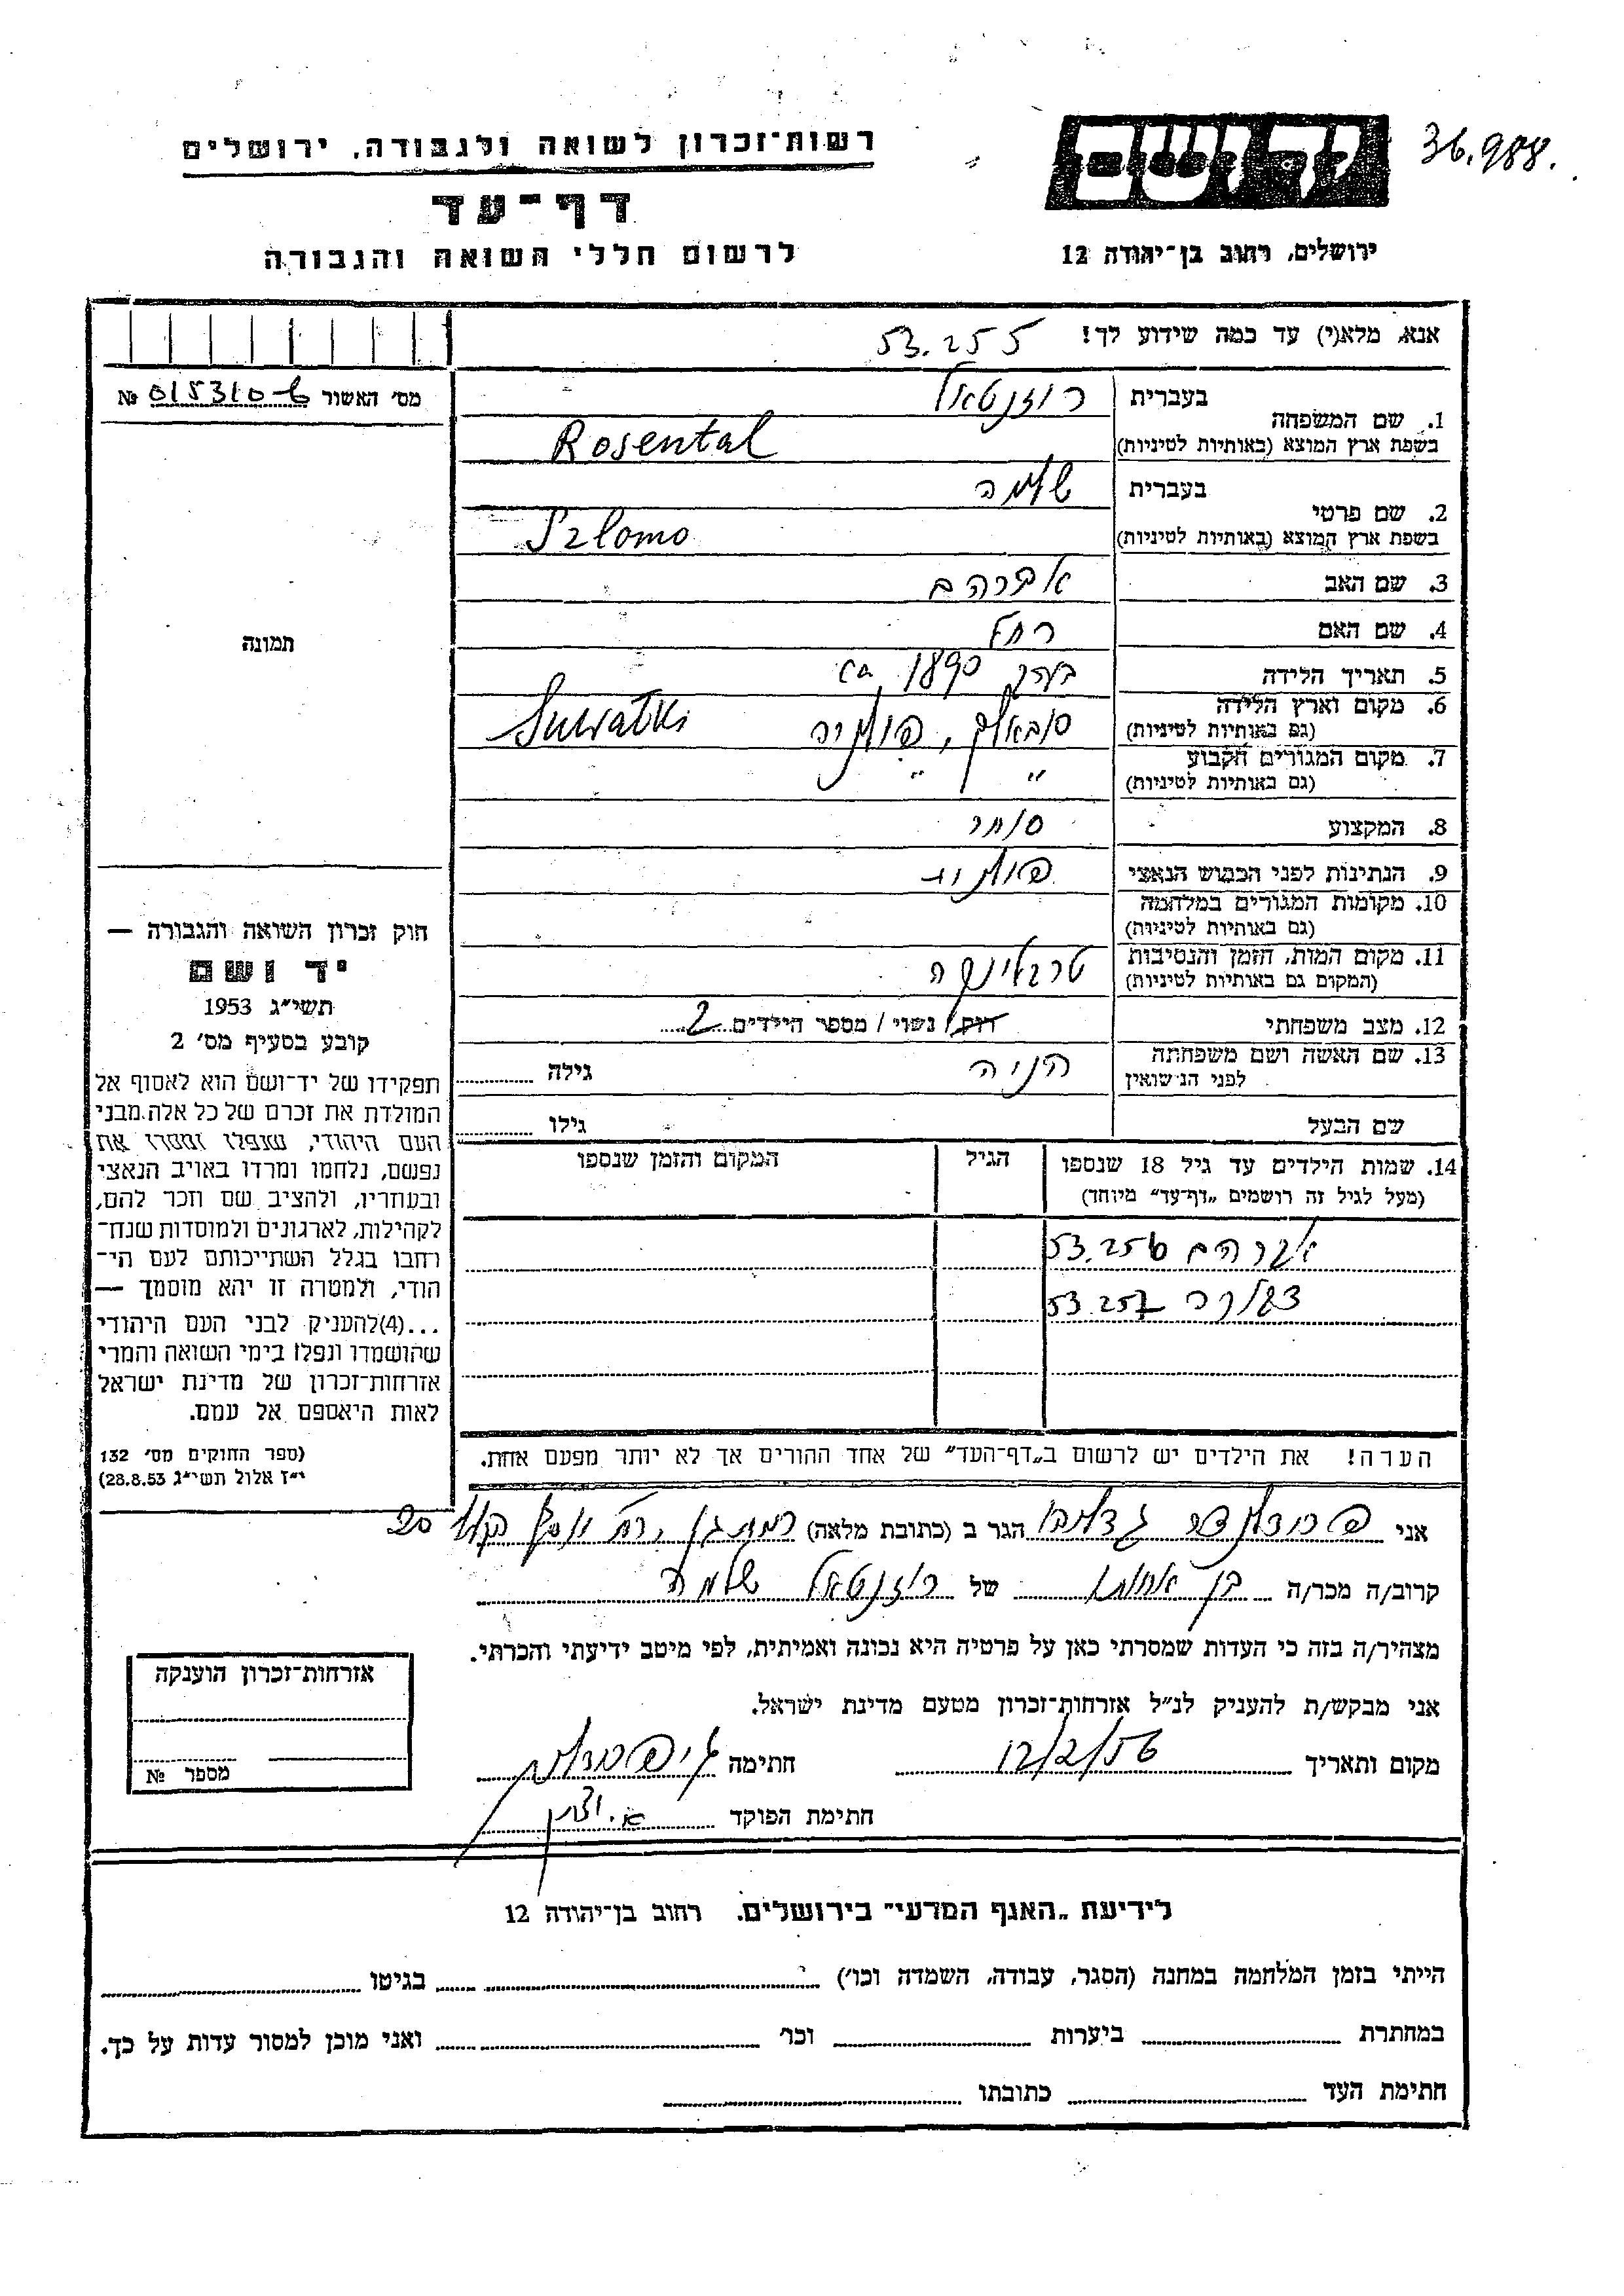 36.988.
רשות־זכרון לשואה ולגבורה, ירושלים
דף־עד
לרשום חללי השואה והגבורה
ירושלים, רחוב בן־יהודה 12
אנא, מלא(י) עד כמה שידוע לך! 53.255
מס׳ האשור № 015310-6
1. שם המשפחה
בעברית רוזנטאל
בשפת ארץ המוצא (באותיות לטיניות) Rosental
2. שם פרטי
בעברית שלמה
בשפת ארץ המוצא (באותיות לטיניות) Szlomo
3. שם האב אברהם
4. שם האם רחל
5. תאריך הלידה בערך 1890 ca
6. מקום וארץ הלידה
(גם באותיות לטיניות) סובאלק, פולניה Suwałki
7. מקום המגורים הקבוע
(גם באותיות לטיניות) " "
8. המקצוע סוחר
9. הנתינות לפני הכבוש הנאצי פולנית
10. מקומות המגורים במלחמה
(גם באותיות לטיניות)
11. מקום המות, הזמן והנסיבות
(המקום גם באותיות לטיניות) טרבלינקה
12. מצב משפחתי רווק / נשוי / מספר הילדים 2
13. שם האשה ושם משפחתה
לפני הנישואין הניה גילה
שם הבעל גילו
14. שמות הילדים עד גיל 18 שנספו
(מעל לגיל זה רושמים „דף־עד” מיוחד)
הגיל
המקום והזמן שנספו
אברהם 53.256
53.257
תמונה
חוק זכרון השואה והגבורה —
יד ושם
תשי״ג 1953
קובע בסעיף מס׳ 2
תפקידו של יד־ושם הוא לאסוף אל
המולדת את זכרם של כל אלה מבני
העם היהודי, שנפלו ומסרו את
נפשם, נלחמו ומרדו באויב הנאצי
ובעוזריו, ולהציב שם וזכר להם,
לקהילות, לארגונים ולמוסדות שנח־
רחבו בגלל השתייכותם לעם הי־
הודי, ולמטרה זו יהא מוסמך —
...(4)להעניק לבני העם היהודי
שהושמדו ונפלו בימי השואה והמרי
אזרחות־זכרון של מדינת ישראל
לאות היאספם אל עמם.
(ספר החוקים מס׳ 132
י״ז אלול תשי״ג 28.8.53)
הערה! את הילדים יש לרשום ב„דף־העד” של אחד ההורים אך לא יותר מפעם אחת.
אני הגר ב (כתובת מלאה) רמת גן, 20
קרוב/ה מכר/ה בן אחותו של רוזנטאל שלמה
מצהיר/ה בזה כי העדות שמסרתי כאן על פרטיה היא נכונה ואמיתית, לפי מיטב ידיעתי והכרתי.
אני מבקש/ת להעניק לנ״ל אזרחות־זכרון מטעם מדינת ישראל.
מקום ותאריך 12/2/56 חתימה
חתימת הפוקד
אזרחות־זכרון הוענקה
מספר №
לידיעת „האגף המדעי” בירושלים, רחוב בן־יהודה 12
הייתי בזמן המלחמה במחנה (הסגר, עבודה, השמדה וכו׳) בגיטו
במחתרת ביערות וכו׳ ואני מוכן למסור עדות על כך.
חתימת העד כתובתו